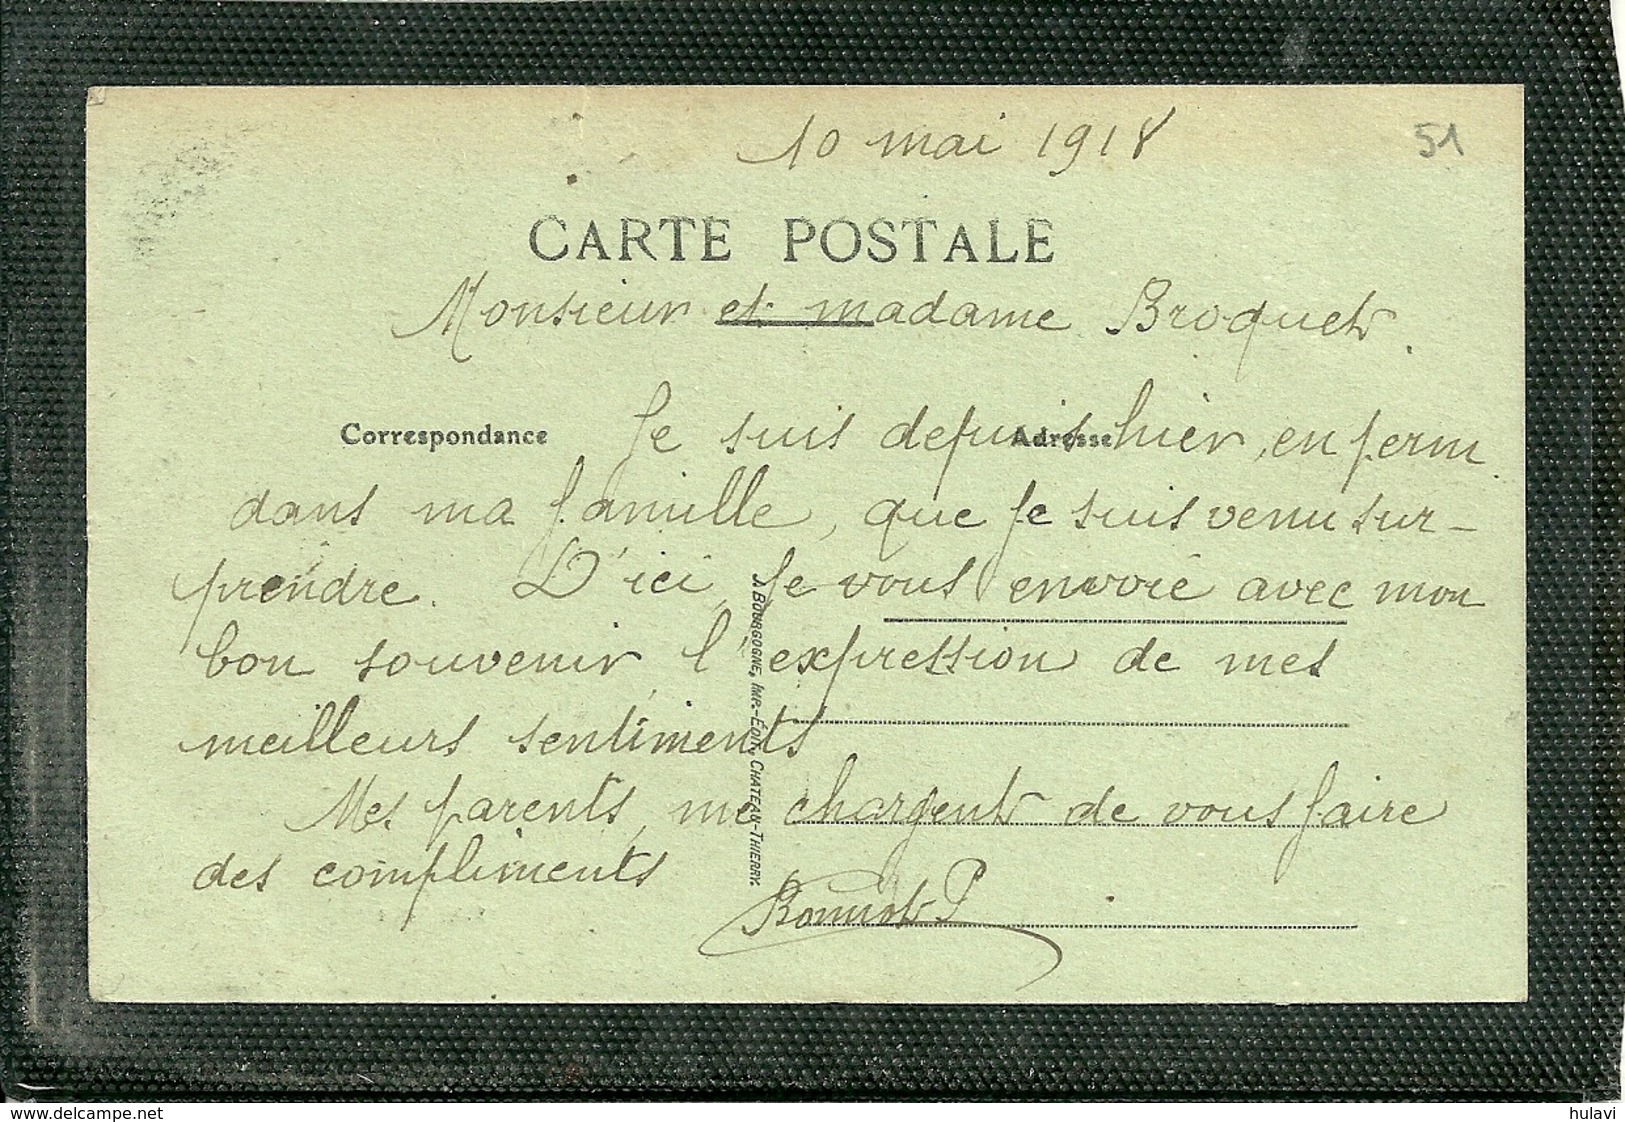 10 mai 1918
51
CARTE POSTALE
Monsieur et madame Broquet
Correspondance
Adresse
Je suis depuis hier, en perm
dans ma famille, que je suis venu sur-
prendre. D'ici, je vous envoie avec mon
bon souvenir, l'expression de mes
meilleurs sentiments
Mes parents, me chargent de vous faire
des compliments
P
J. BOURGOGNE, IMP.-ÉDIT, CHATEAU-THIERRY.
www.delcampe.net
hulavi